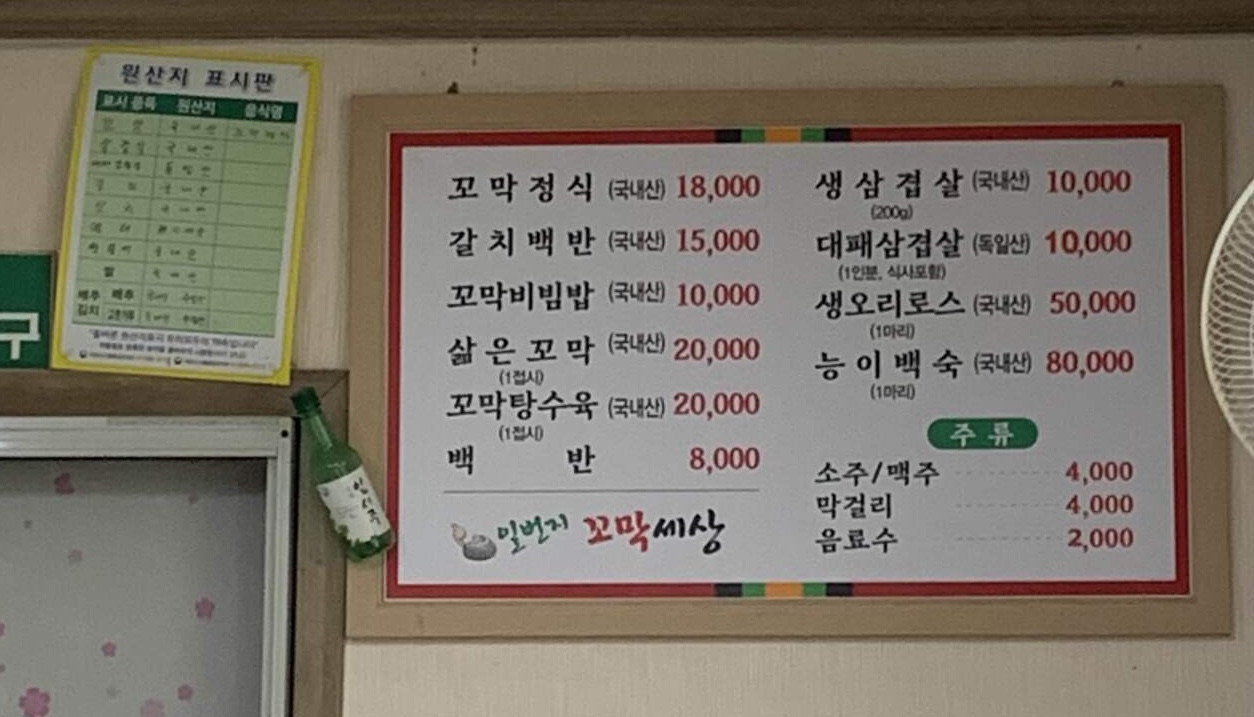 원산지 표시판
표시 품목 원산지 음식명
쌀
배추 배추
김치 고춧가루
구
꼬막정식 (국내산) 18,000
갈치백반 (국내산) 15,000
꼬막비빔밥 (국내산) 10,000
삶은꼬막 (국내산) 20,000
(1접시)
꼬막탕수육 (국내산) 20,000
(1접시)
백반 8,000
일번지 꼬막세상
생삼겹살 (국내산) 10,000
(200g)
대패삼겹살 (독일산) 10,000
(1인분, 식사포함)
생오리로스 (국내산) 50,000
(1마리)
능이백숙 (국내산) 80,000
(1마리)
주류
소주/맥주 4,000
막걸리 4,000
음료수 2,000
잎새주